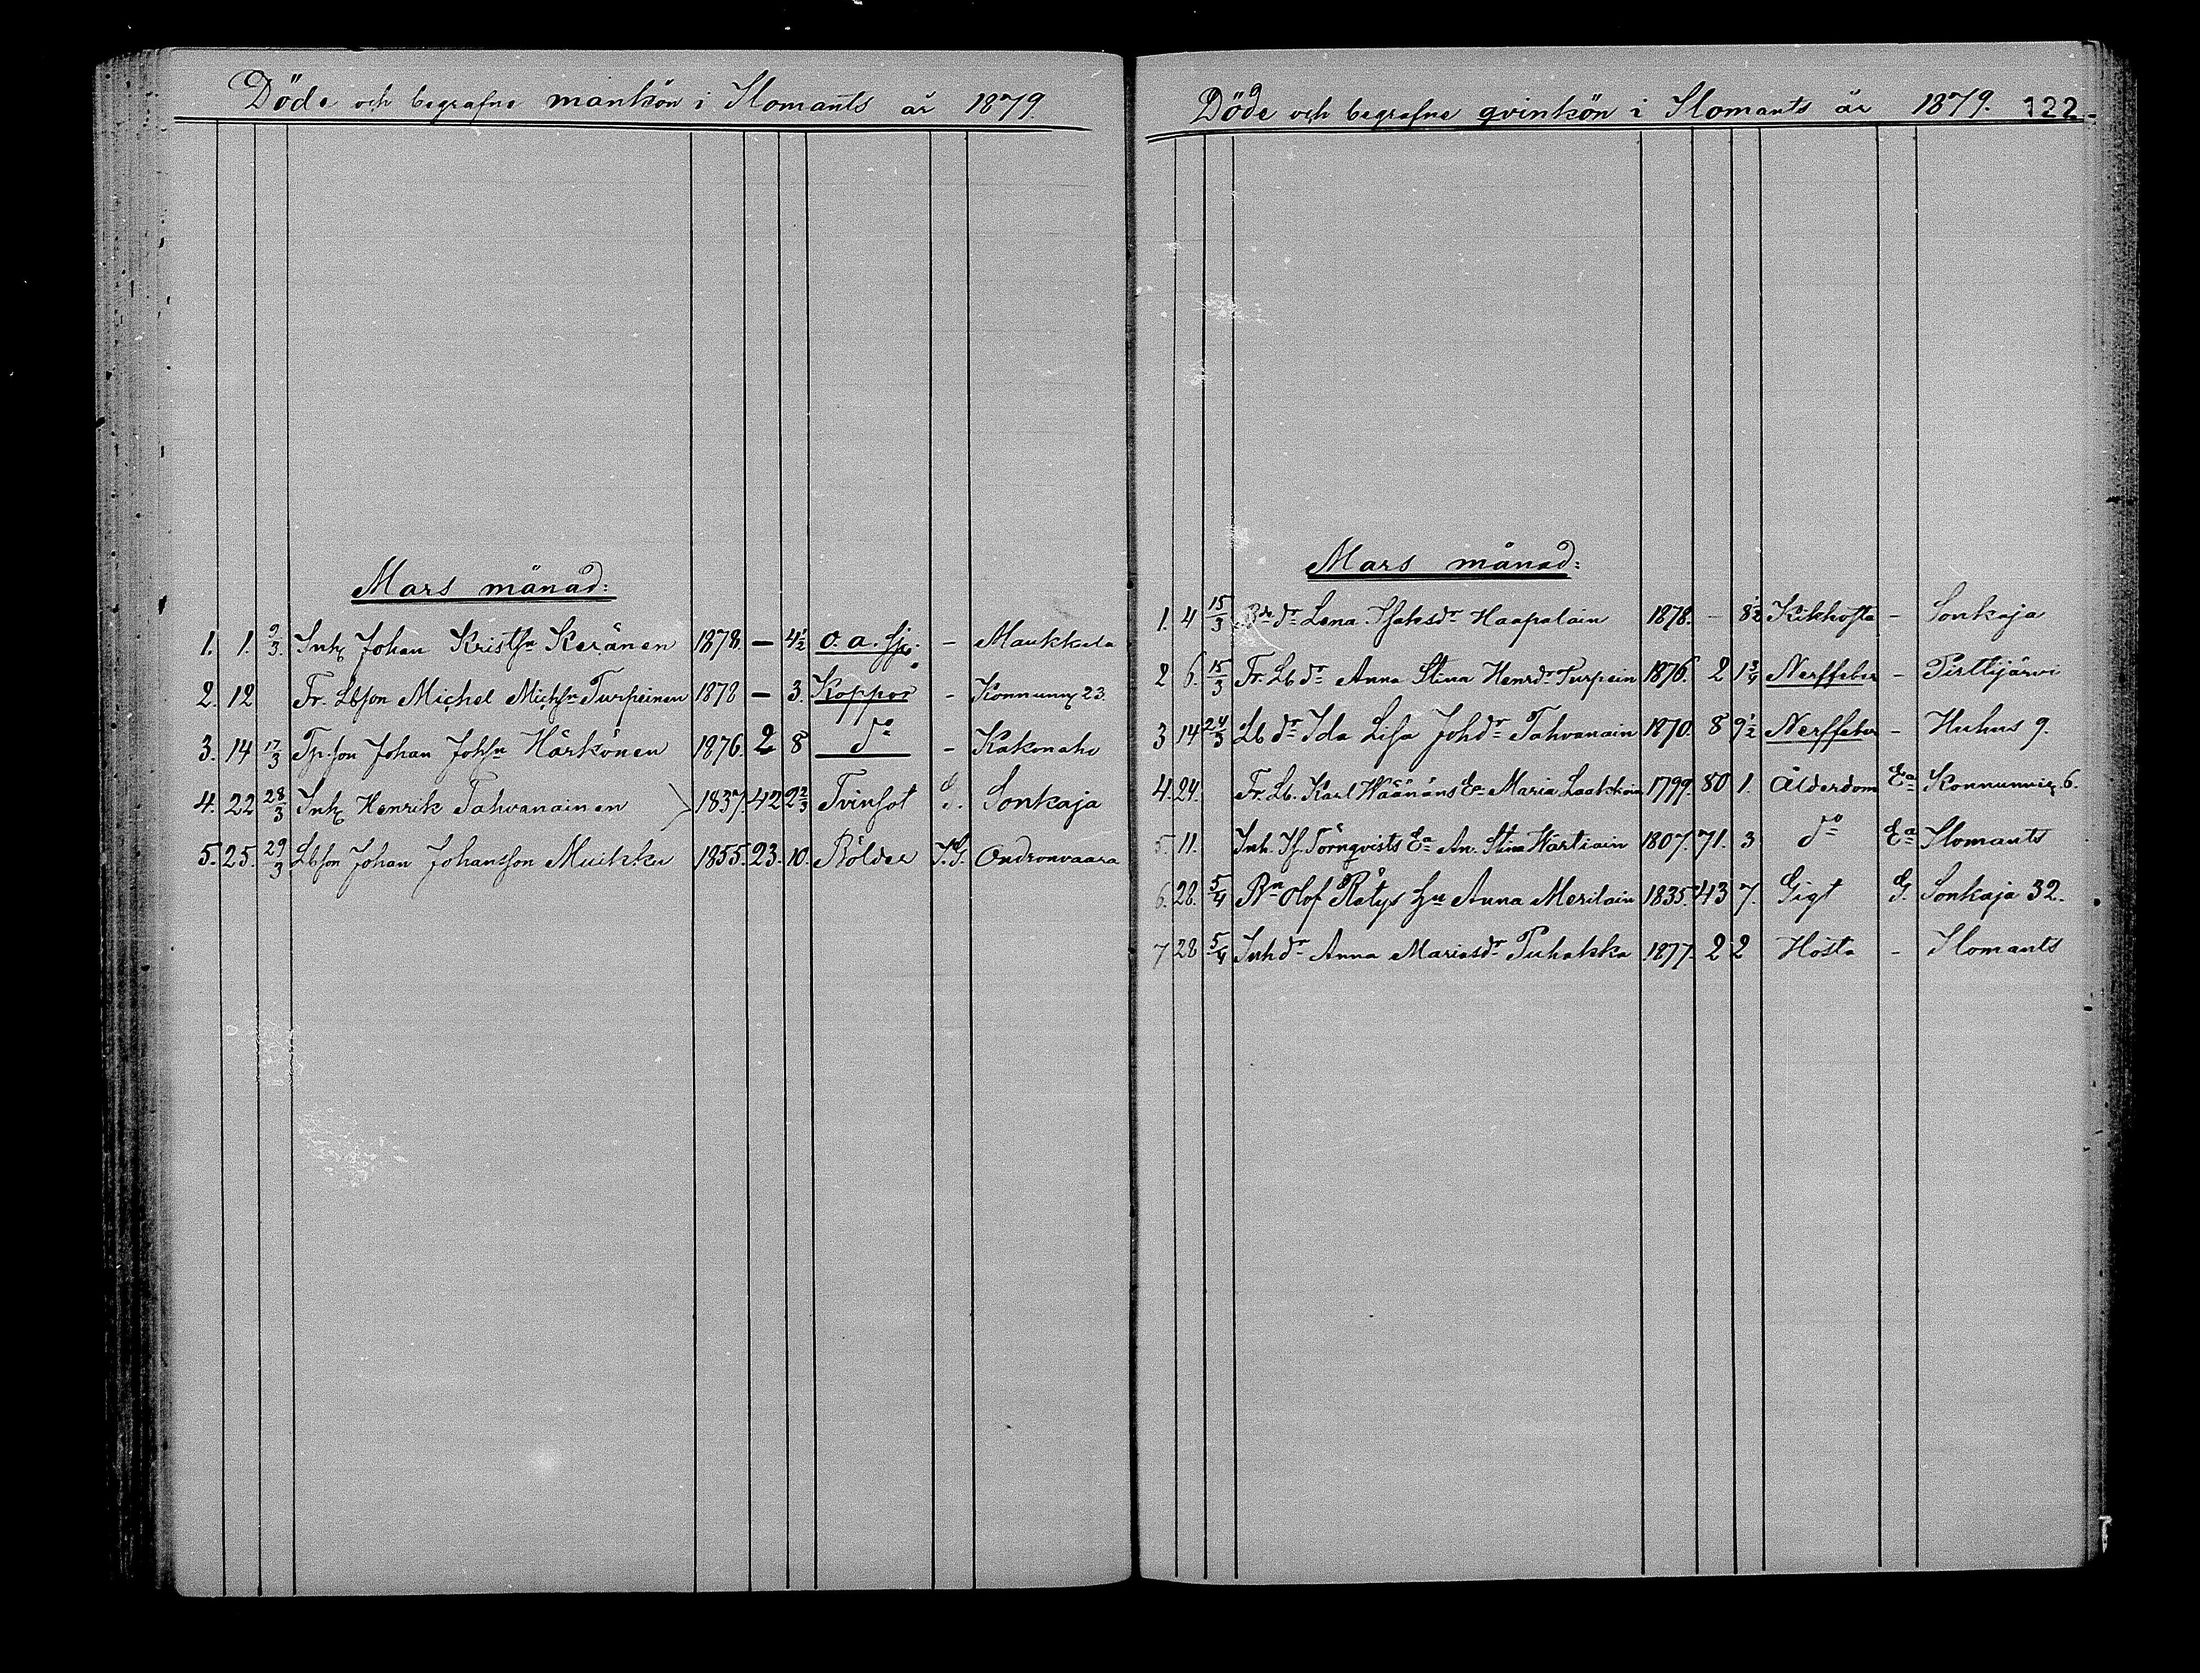 Döde och begrafne mankön i Ilomants år 1879.
Mars månad:
1. 1. 9/3. Inh Johan Kristsn Keränen 1878. — 4½ o. a. sj. - Maukkula
2. 12 Fr. Lbson Michel Michsn Turpeinen 1878 — 3. Koppor - Konnunn 23.
3. 14 17/3 Tp. son Johan Johsn Härkönen 1876. 2 8 do - Kakonaho
4. 22 28/3 Inh Henrik Tahvanainen 1837. 42 2 2/3 Tvinsot G. Sonkaja
5. 25. 29/3 Lbson Johan Johansson Muikku 1855. 23. 10. Bölder Ondronvaara
Döde och begrafne qvinkön i Ilomants år 1879. 122.
Mars månad:
1. 4 15/3 Bdr Lena Isaksdr Haapalain 1878. - 8½ Kikhosta - Sonkaja
2 6. 15/3 Fr. Lb dr Anna Stina Henrdr Turpein 1876. 2 1¾ Nerffeber - Pirttijärvi
3 14 24/3 Lb dr Ida Lisa Johdr Tahvanain 1870. 8 9½ Nerffeber - Huhus 9.
4. 24. Fr. Lb. Karl Wäänäns Ea Maria Laakkoin 1799. 80 1. Ålderdom Ea 6.
5. 11. Inh. Is. Törnqvists Ea An. Stina Hartiain 1807. 71. 3 do Ea Ilomants
6. 28. 5/4 Bn Olof Rätys Hu Anna Merilain 1835. 43 7. Gigt G. Sonkaja 32.
7 28 5/4 Inh dr Anna Mariasdr Puhakka 1877. 2 2 Hosta - Ilomants